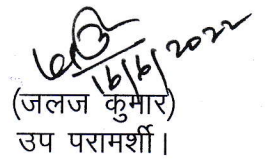 16/6/2022
(जलज कुमार)
उप परामर्शी।